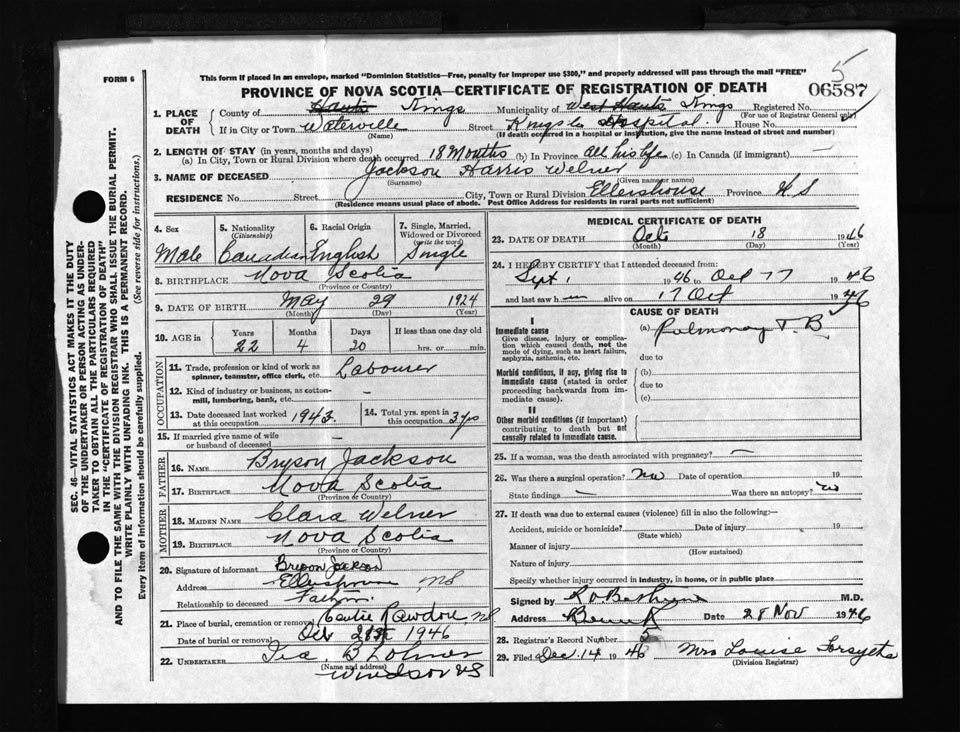 This form if placed in an envelope, marked "Dominion Statistics—Free, penalty for improper use $300," and properly addressed will pass through the mail "FREE"
5
FORM 6
PROVINCE OF NOVA SCOTIA—CERTIFICATE OF REGISTRATION OF DEATH
06587
1. PLACE OF DEATH
County of Hants Kings Municipality of West Hants Kings Registered No.
(For use of Registrar General only)
If in City or Town Waterville Street Kings Co Hospital. House No.
(Name) (If death occurred in a hospital or institution, give the name instead of street and number)
2. LENGTH OF STAY (in years, months and days)
(a) In City, Town or Rural Division where death occurred 18 Months (b) In Province All his life (c) In Canada (if immigrant) —
3. NAME OF DECEASED Jackson Harris Welner
(Surname) (Given name or names)
RESIDENCE No. Street City, Town or Rural Division Ellershouse Province N S
(Residence means usual place of abode. Post Office Address for residents in rural parts not sufficient)
4. Sex
Male
5. Nationality
(Citizenship)
Canadian
6. Racial Origin
English
7. Single, Married, Widowed or Divorced
(write the word)
Single
8. BIRTHPLACE Nova Scotia
(Province or Country)
9. DATE OF BIRTH May 29 1924
(Month) (Day) (Year)
10. AGE in
Years Months Days If less than one day old
22 4 20 hrs. or min.
OCCUPATION
11. Trade, profession or kind of work as spinner, teamster, office clerk, etc. Labourer
12. Kind of industry or business, as cotton-mill, lumbering, bank, etc. —
13. Date deceased last worked at this occupation 1943.
14. Total yrs. spent in this occupation 3 yrs
15. If married give name of wife or husband of deceased —
FATHER
16. NAME Bryson Jackson
17. BIRTHPLACE Nova Scotia
(Province or Country)
MOTHER
18. MAIDEN NAME Clara Welner
19. BIRTHPLACE Nova Scotia
(Province or Country)
20. Signature of informant Bryson Jackson
Address Ellershouse NS
Relationship to deceased Father.
21. Place of burial, cremation or removal Centre Rawdon NS
Date of burial or removal Oct 21st 1946
22. UNDERTAKER Ira B Lohnes
(Name and address)
Windsor NS
MEDICAL CERTIFICATE OF DEATH
23. DATE OF DEATH Oct 18 1946
(Month) (Day) (Year)
24. I HEREBY CERTIFY that I attended deceased from:
Sept, 1 1946 to Oct 17 1946
and last saw h im alive on 17 Oct 1946
CAUSE OF DEATH
I
Immediate cause
Give disease, injury or complication which caused death, not the mode of dying, such as heart failure, asphyxia, asthenia, etc.
(a) Pulmonary T. B
due to
Morbid conditions, if any, giving rise to immediate cause (stated in order proceeding backwards from immediate cause).
(b)
due to
(c)
II
Other morbid conditions (if important) contributing to death but not causally related to immediate cause.
25. If a woman, was the death associated with pregnancy? —
26. Was there a surgical operation? no Date of operation 19
State findings — Was there an autopsy? no
27. If death was due to external causes (violence) fill in also the following:—
Accident, suicide or homicide? Date of injury 19
(State which)
Manner of injury
(How sustained)
Nature of injury
Specify whether injury occurred in industry, in home, or in public place
Signed by M.D.
Address Date 28 Nov 1946
28. Registrar's Record Number 5
29. Filed Dec. 14 1946 Mrs Louise Forsythe
(Division Registrar)
SEC. 46—VITAL STATISTICS ACT MAKES IT THE DUTY
OF THE UNDERTAKER OR PERSON ACTING AS UNDER-
TAKER TO OBTAIN ALL THE PARTICULARS REQUIRED
IN THE "CERTIFICATE OF REGISTRATION OF DEATH"
AND TO FILE THE SAME WITH THE DIVISION REGISTRAR WHO SHALL ISSUE THE BURIAL PERMIT.
WRITE PLAINLY WITH UNFADING INK. THIS IS A PERMANENT RECORD.
Every item of information should be carefully supplied. (See reverse side for instructions.)